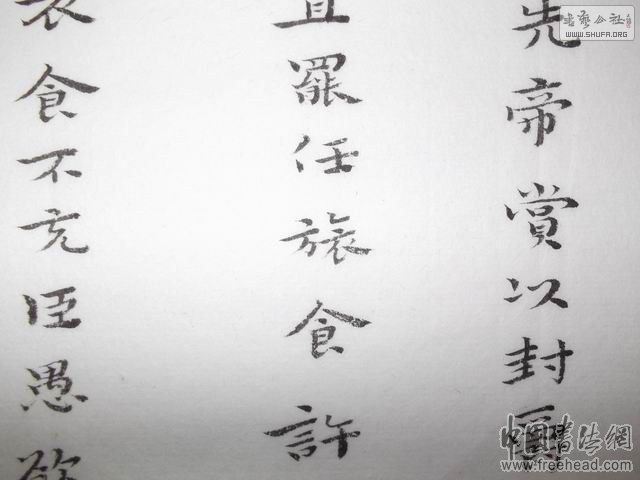 先帝賞以封爵
直罷任旅食許
衣食不充臣愚欲
書藝公社
WWW.SHUFA.ORG
中國書法網
www.freehead.com